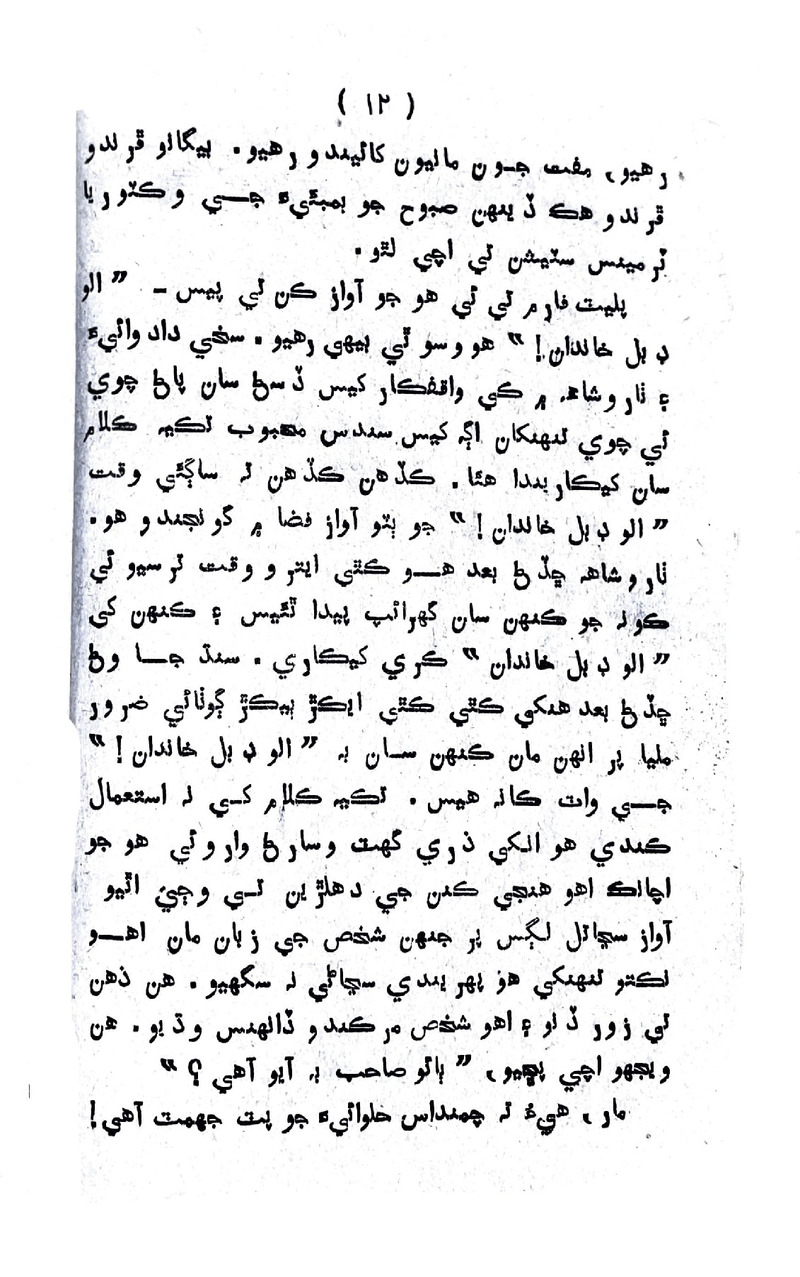 ( ۱۲ )
رهيو، مفت جون مانيون کائيندو رهيو. بيگانو ڦرندو
ڦرندو هڪ ڏينهن صبوح جو بمبئيءَ جي وڪٽوريا
ٽرمينس سٽيشن تي اچي لٿو.
پليٽ فارم تي ئي هو جو آواز ڪن تي پيس ــ ”الو
ڊبل خاندان!“ هو وسو ٿي بيهي رهيو. سخي داد واٽيءَ
۽ ٺاروشاهه ۾ ڪي واقفڪار کيس ڏسڻ سان پاڻ چوي
ئي چوي تنهنکان اڳ کيس سندس محبوب تڪيه ڪلام
سان کيڪاريندا هئا. ڪڏهن ڪڏهن ته ساڳئي وقت
”الو ڊبل خاندان!“ جو ٻٽو آواز فضا ۾ گونجندو هو.
ٺاروشاهه ڇڏڻ بعد هو ڪٿي ايترو وقت ترسيو ئي
ڪونه جو ڪنهن سان گهرائپ پيدا ٿئيس ۽ ڪنهن کي
”الو ڊبل خاندان“ ڪري کيڪاري. سنڌ جا وڻ
ڇڏڻ بعد هنکي ڪٿي ڪٿي ايڪڙ ٻيڪڙ ڳوٺائي ضرور
مليا پر انهن مان ڪنهن سان به ”الو ڊبل خاندان!“
جي وات ڪانه هيس. تڪيه ڪلام کي نه استعمال
ڪندي هو انکي ذري گهٽ وسارڻ وارو ئي هو جو
اچانڪ اهو هنجي ڪنن جي دهلڙين تي وڄي اٿيو
آواز سڃاتل لڳس پر جنهن شخص جي زبان مان اهو
نڪتو تنهنکي هو پهريندي سڃاڻي نه سگهيو. هن ذهن
تي زور ڏنو ۽ اهو شخص مرڪندو ڏانهنس وڌيو. هن
ويجهو اچي پڇيو، ”ڀائو صاحب به آيو آهي؟“
مار، هيءُ ته چمنداس حلوائيءَ جو پٽ جهمٽ آهي!